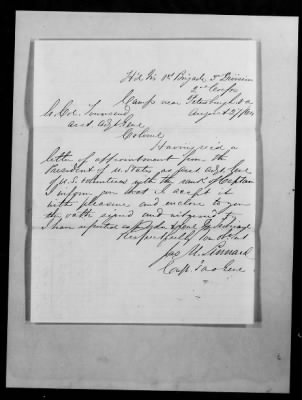 Hd Qrs 1st Brigade 3d Division
2nd Corps
Camp near Petersburg Va
August 2/1864
Col. Townsend
asst adjt Genl
Colonel
Having rec'd a
letter of appointment from the
President of U. States as asst adjt Genl
of U.S. Volunteers with the rank of Captain
I inform you that I accept it
with pleasure and enclose to you
the oath signed and
I have reported
Respectfully your obt svt
Capt